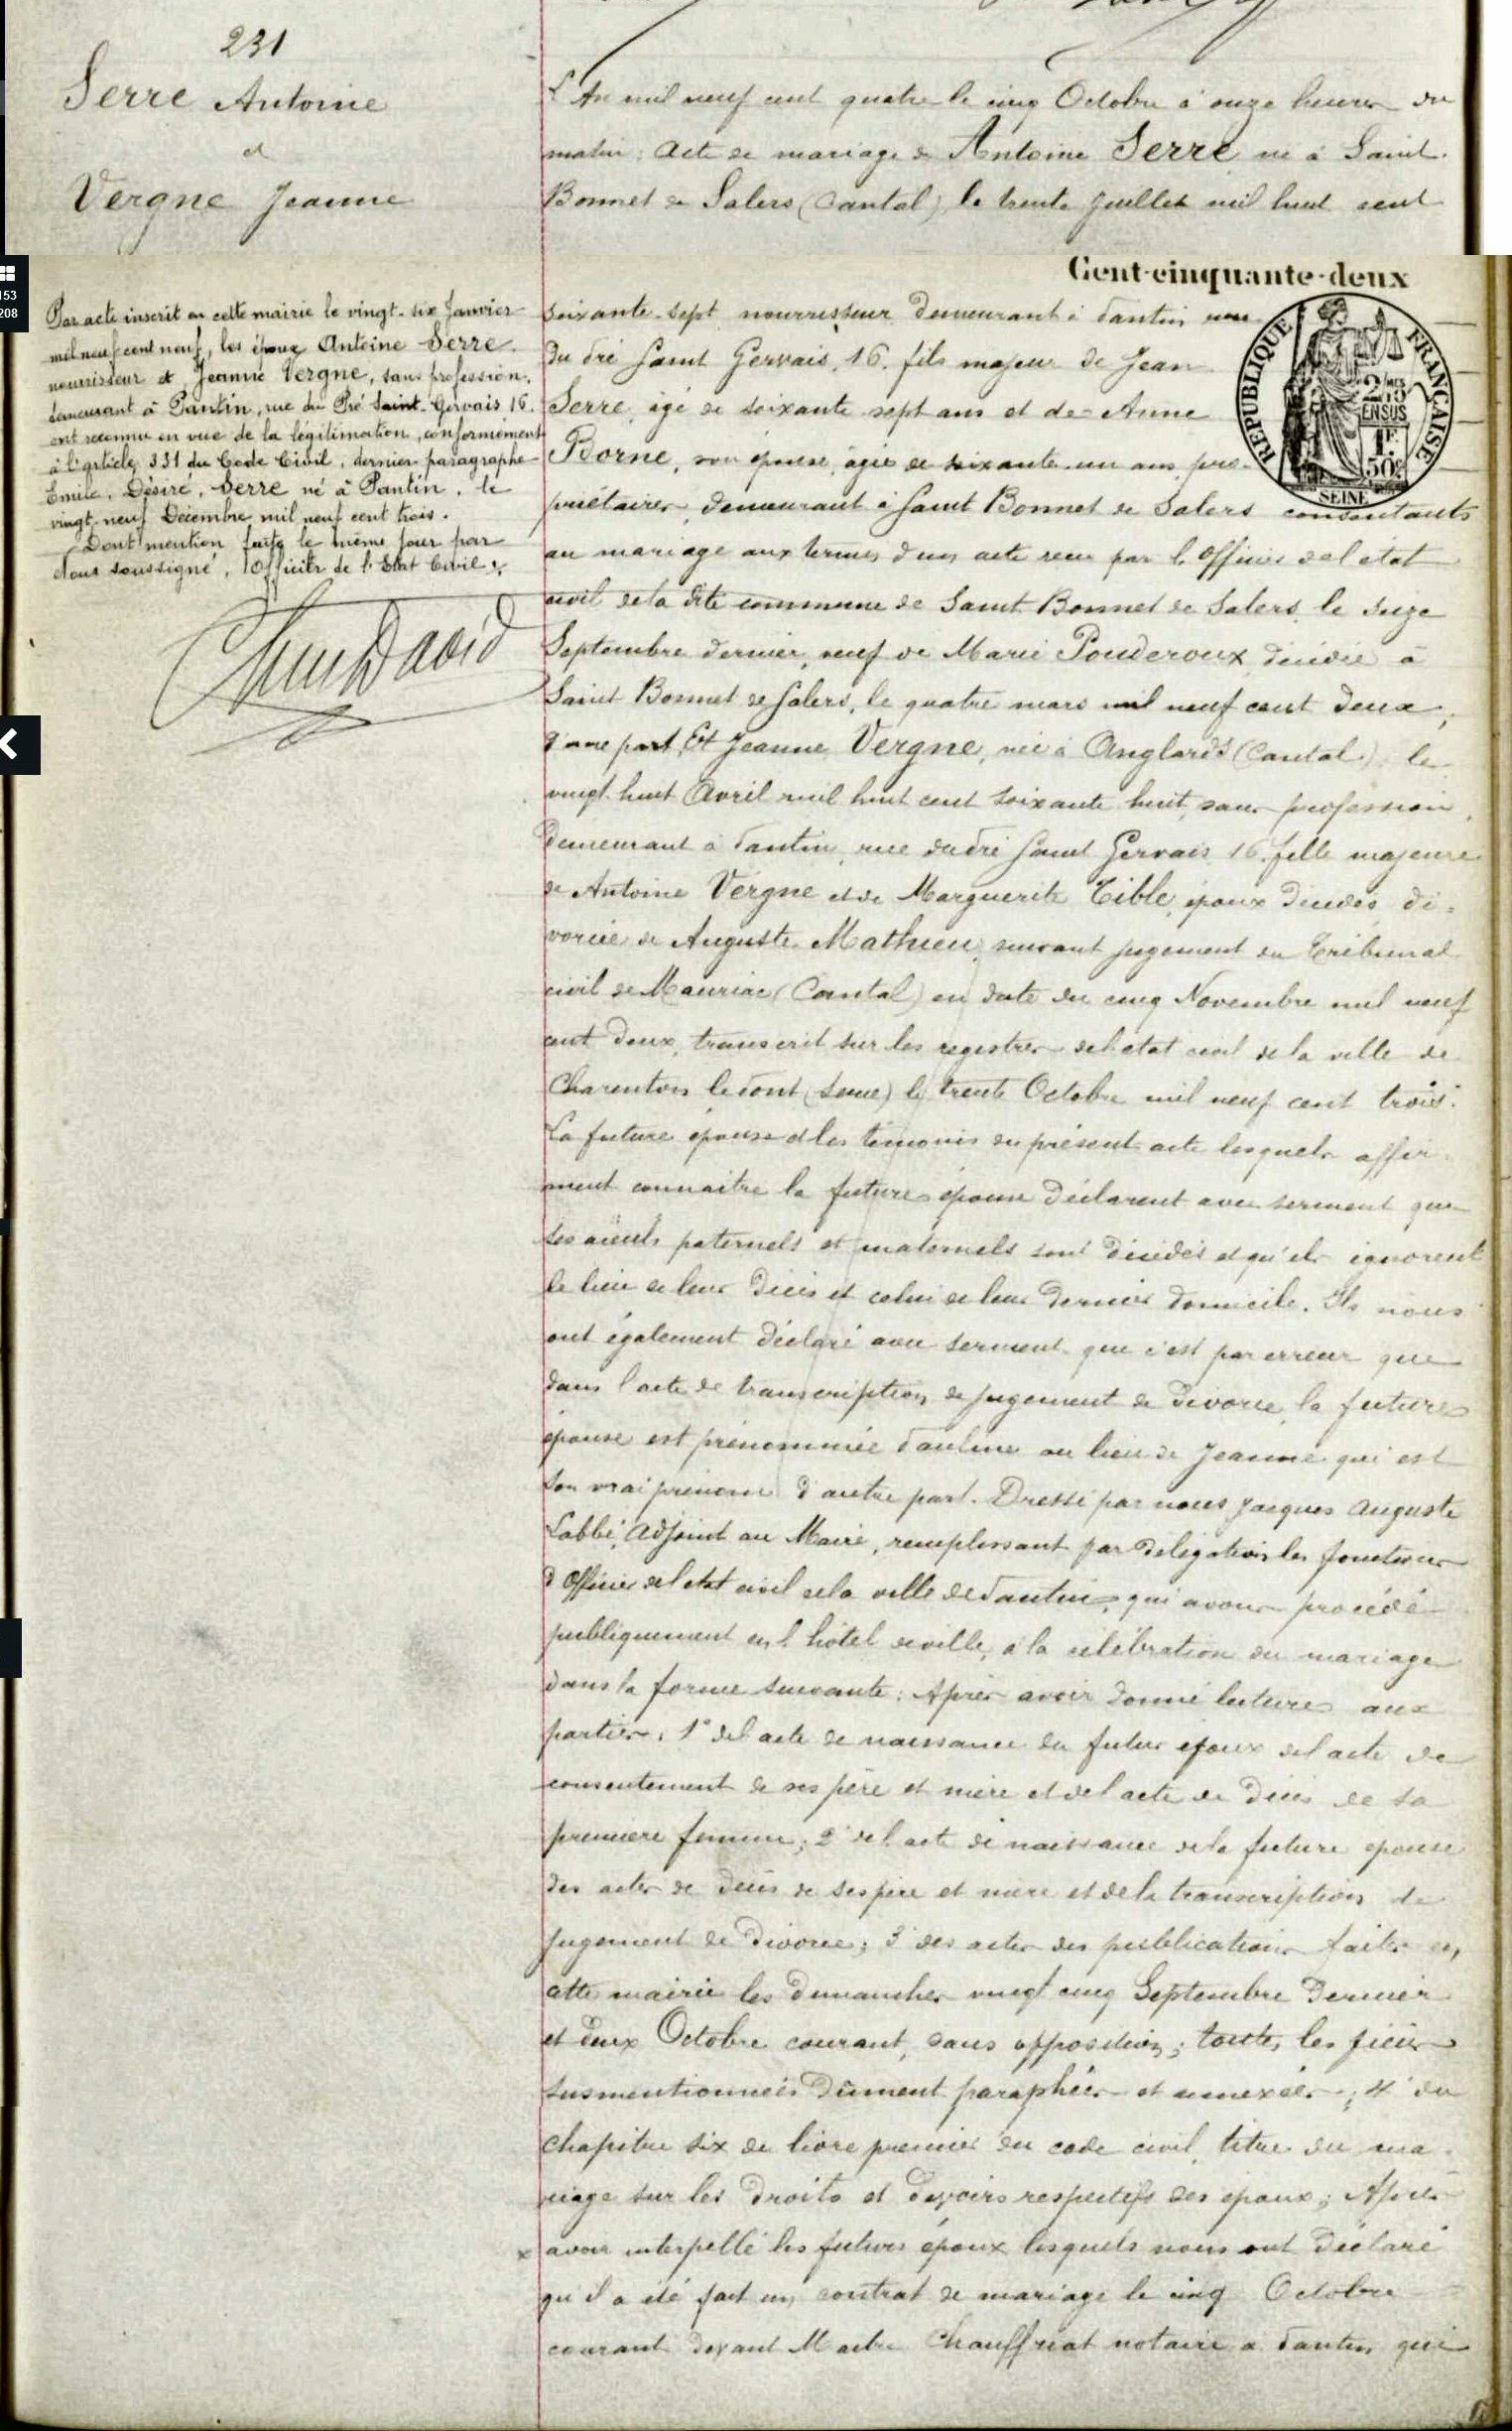 231
Serre Antoine
et
Vergne Jeanne
L'An mil neuf cent quatre le cinq Octobre à onze heures du
matin; Acte de mariage de Antoine Serre né à Saint
Bonnet de Salers (Cantal) le trente Juillet mil huit cent
Cent-cinquante-deux
153
208
Par acte inscrit en cette mairie le vingt-six Janvier
mil neuf cent neuf, les époux Antoine Serre
nourrisseur et Jeanne Vergne, sans profession,
demeurant à Pantin, rue du Pré Saint-Gervais 16.
ont reconnu en vue de la légitimation, conformément
à l'article 331 du Code Civil, dernier paragraphe
Emile, Désiré, Serre né à Pantin, le
vingt-neuf Décembre mil neuf cent trois.
Dont mention faite le même jour par
Nous soussigné, Officier de l'Etat Civil.
David
RÉPUBLIQUE FRANÇAISE
2/10mes
EN SUS
1F
50c
SEINE
soixante-sept nourrisseur demeurant à Pantin rue
du Pré Saint Gervais, 16. fils majeur de Jean
Serre, âgé de soixante sept ans et de Anne
Borne, son épouse, âgée de soixante un ans, pro-
priétaires, demeurant à Saint Bonnet de Salers consentants
au mariage aux termes d'un acte reçu par l'Officier de l'état
civil de la dite commune de Saint Bonnet de Salers, le seize
Septembre dernier, veuf de Marie Pouderoux décédée à
Saint Bonnet de Salers, le quatre mars mil neuf cent deux,
d'une part, Et Jeanne Vergne, née à Anglards (Cantal) le
vingt huit Avril mil huit cent soixante huit, sans profession,
demeurant à Pantin, rue du Pré Saint Gervais 16. fille majeure
de Antoine Vergne et de Marguerite Tible, époux décédés, di-
vorcée de Auguste Mathieu, suivant jugement du Tribunal
civil de Mauriac (Cantal) en date du cinq Novembre mil neuf
cent deux, transcrit sur les registres de l'état civil de la ville de
Charenton le Pont (Seine) le trente Octobre mil neuf cent trois.
La future épouse et les témoins du présent acte lesquels affir-
ment connaitre la future épouse déclarent avec serment que
ses aïeuls paternels et maternels sont décédés et qu'ils ignorent
le lieu de leur décès et celui de leur dernier domicile. Ils nous
ont également déclaré avec serment que c'est par erreur que
dans l'acte de transcription de jugement de divorce la future
épouse est prénommée Pauline au lieu de Jeanne qui est
son vrai prénom d'autre part. Dressé par nous Jacques Auguste
Labbé, Adjoint au Maire, remplissant par délégation les fonctions
d'Officier de l'état civil de la ville de Pantin, qui avons procédé
publiquement en l'hôtel de ville, à la célébration du mariage
dans la forme suivante: Après avoir donné lecture aux
parties: 1° de l'acte de naissance du futur époux de l'acte de
consentement de ses père et mère et de l'acte de décès de sa
première femme; 2° de l'acte de naissance de la future épouse
des actes de décès de ses père et mère et de la transcription de
jugement de divorce; 3° des actes des publications faites en
cette mairie les dimanches vingt cinq Septembre dernier
et deux Octobre courant, sans opposition; toutes les pièces
susmentionnées dûment paraphées et annexées; 4° du
chapitre six du livre premier du code civil, titre du ma-
riage sur les droits et devoirs respectifs des époux; Après
x avoir interpellé les futurs époux lesquels nous ont déclaré
qu'il a été fait un contrat de mariage le cinq Octobre
courant devant Maitre Chauffriat notaire à Pantin qui